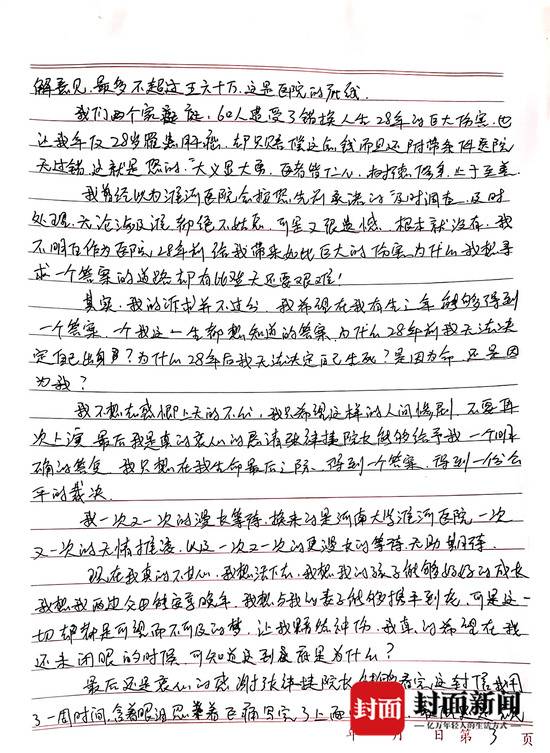 解意见，最多不超过五六十万，这是医院的底线。
我们两个家庭，60人遭受了错换人生28年的巨大伤害，也
让我年仅28岁罹患肝癌，却只赔偿这点钱而且还附带条件医院
无过错，这就是您的"大义显大勇，医者皆仁心，
我曾经以为淮河医院会按照您先前承诺的"及时调查，及时
处理，无论涉及谁都绝不姑息，可是又很遗憾，根本就没有，我
不明白作为医院28年前给我带来如此巨大的伤害，为什么我想寻
求一个答案的道路却有比登天还要艰难！
其实，我的诉求并不过分，我希望在我有生之年能够得到
一个答案，一个我这一生都想知道的答案，为什么28年前我无法决
定自己出身？为什么28年后我无法决定自己生死？是因为命，还是因
为我？
我不想在感慨上天的不公，我只希望这样的人间惨剧，不要再
次上演，最后我是真的衷心的恳请张祎捷院长能够给予我一个明
确的答复，我只想在我生命最后之际，得到一个答案，得到一份公
平的裁决。
我一次又一次的漫长等待，换来的是河南大学淮河医院一次
又一次的无情推诿，以及一次又一次的更漫长的等待，无助，期待。
现在我真的不甘心，我想活下去，我想我的孩子能够好好的成长，
我想我两边父母能安享晚年，我想与我的妻子能够携手到老，可是这一
切却都是可望而不可及的梦，让我黯然神伤，我真的希望在我
还未闭眼的时候，可知道这到底都是为什么？
最后还是衷心的感谢张祎捷院长能够看完这封信，我用
了一周时间，含着眼泪忍着巨痛写完了上面
封面 封面新闻
亿万年轻人的生活方式
年 月 日 第 3 页